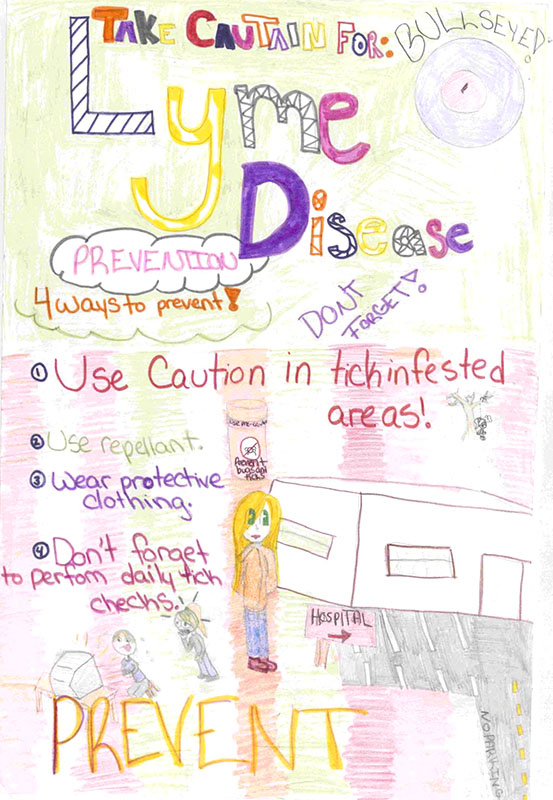 TAKE CAUTAIN FOR:
BULLSEYED!
Lyme
Disease
PREVENTION
4 ways to prevent!
DONT
FORGET!
1 Use Caution in tick infested
areas!
2 Use repellant.
3 Wear protective
clothing.
4 Don't forget
to perform daily tick
checks!
HOSPITAL
NO PARKING
PREVENT